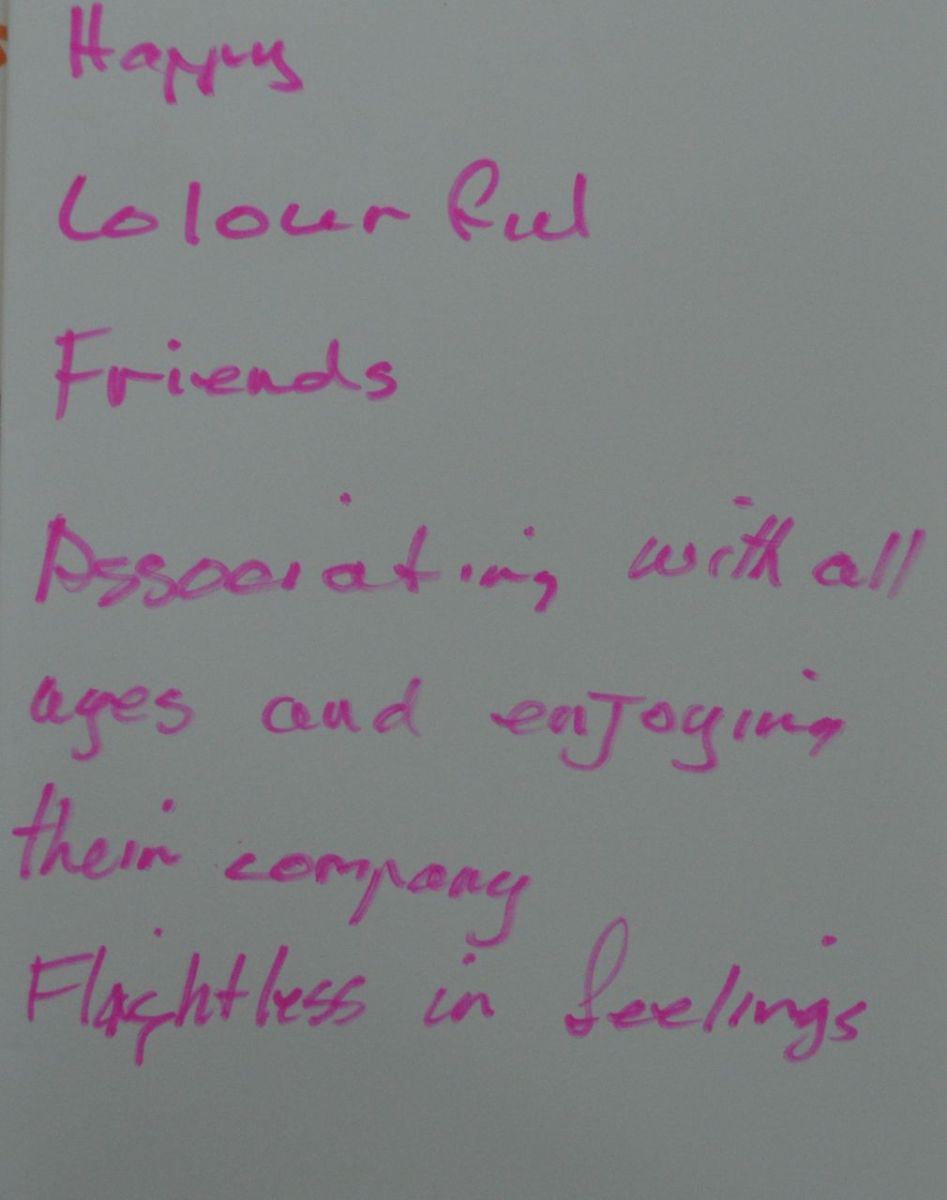 Happy
Colourful
Friends
Associating with all
ages and enjoying
their company
Flightless in feelings